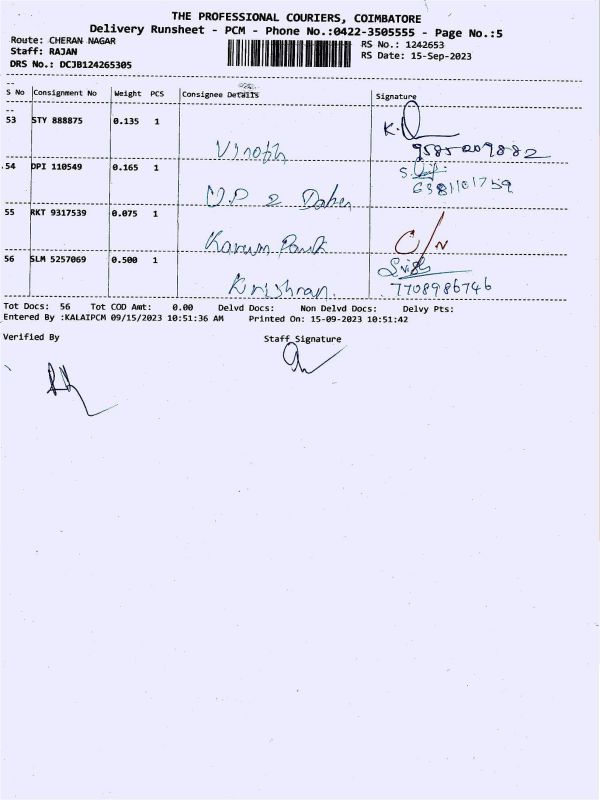 THE PROFESSIONAL COURIERS, COIMBATORE
Delivery Runsheet - PCM - Phone No.:0422-3505555 - Page No.:5
Route: CHERAN NAGAR
RS No.: 1242653
Staff: RAJAN
RS Date: 15-Sep-2023
DRS No.: DCJB124265305
S No Consignment No Weight PCS Consignee Details Signature
53 STY 888875 0.135 1 Vinoth K.
54 DPI 110549 0.165 1 S.
6381101759
55 RKT 9317539 0.075 1 C/N
56 SLM 5257069 0.500 1 Krishnan
7708986746
Tot Docs: 56 Tot COD Amt: 0.00 Delvd Docs: Non Delvd Docs: Delvy Pts:
Entered By :KALAIPCM 09/15/2023 10:51:36 AM Printed On: 15-09-2023 10:51:42
Verified By Staff Signature